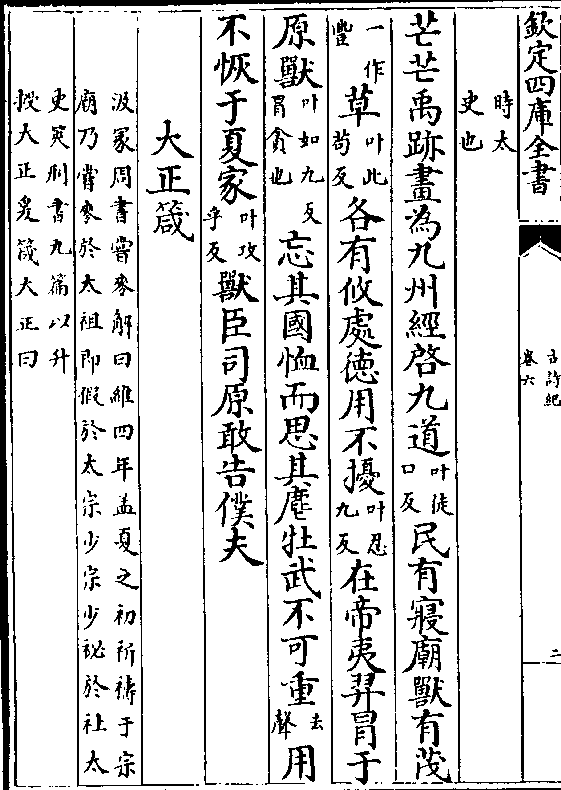 欽定四庫全書
古詩紀
卷六
二
時太
史也
芒芒禹跡畫為九州經啓九道叶徒口反民有寢廟獸有茂
一作豐草叶此苟反各有攸處德用不擾叶忍九反在帝夷羿冒于
原獸叶如九反冒貪也忘其國恤而思其麀牡武不可重去聲用
不恢于夏家叶攻乎反獸臣司原敢告僕夫
大正箴
汲冢周書嘗麥解曰維四年孟夏之初祈禱于宗
廟乃嘗麥於太祖即假於太宗少宗少祕於社太
史筴刑書九篇以升
授大正㠯箴大正曰